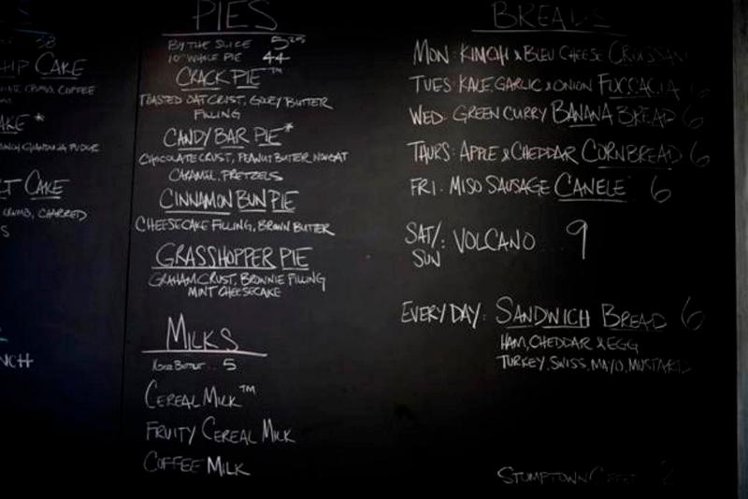 38
CAKE
CRUMB, COFFEE
FUDGE
CAKE
CRUMB, CHARRED
PIES
BY THE SLICE 5.25
10" WHOLE PIE 44
CRACK PIE™
TOASTED OAT CRUST, GOOEY BUTTER
FILLING
CANDY BAR PIE*
CHOCOLATE CRUST, PEANUT BUTTER NOUGAT
CARAMEL, PRETZELS
CINNAMON BUN PIE
CHEESECAKE FILLING, BROWN BUTTER
GRASSHOPPER PIE
GRAHAM CRUST, BROWNIE FILLING
MINT CHEESECAKE
MILKS
BOTTLE 5
CEREAL MILK™
FRUITY CEREAL MILK
COFFEE MILK
BREADS
MON: KIMCHI & BLEU CHEESE CROISSANT
TUES: KALE, GARLIC & ONION FOCCACIA 6
WED: GREEN CURRY BANANA BREAD 6
THURS: APPLE & CHEDDAR CORNBREAD 6
FRI: MISO SAUSAGE CANELE 6
SAT/: VOLCANO 9
SUN
EVERYDAY: SANDWICH BREAD 6
HAM, CHEDDAR & EGG
TURKEY, SWISS, MAYO, MUSTARD
STUMPTOWN